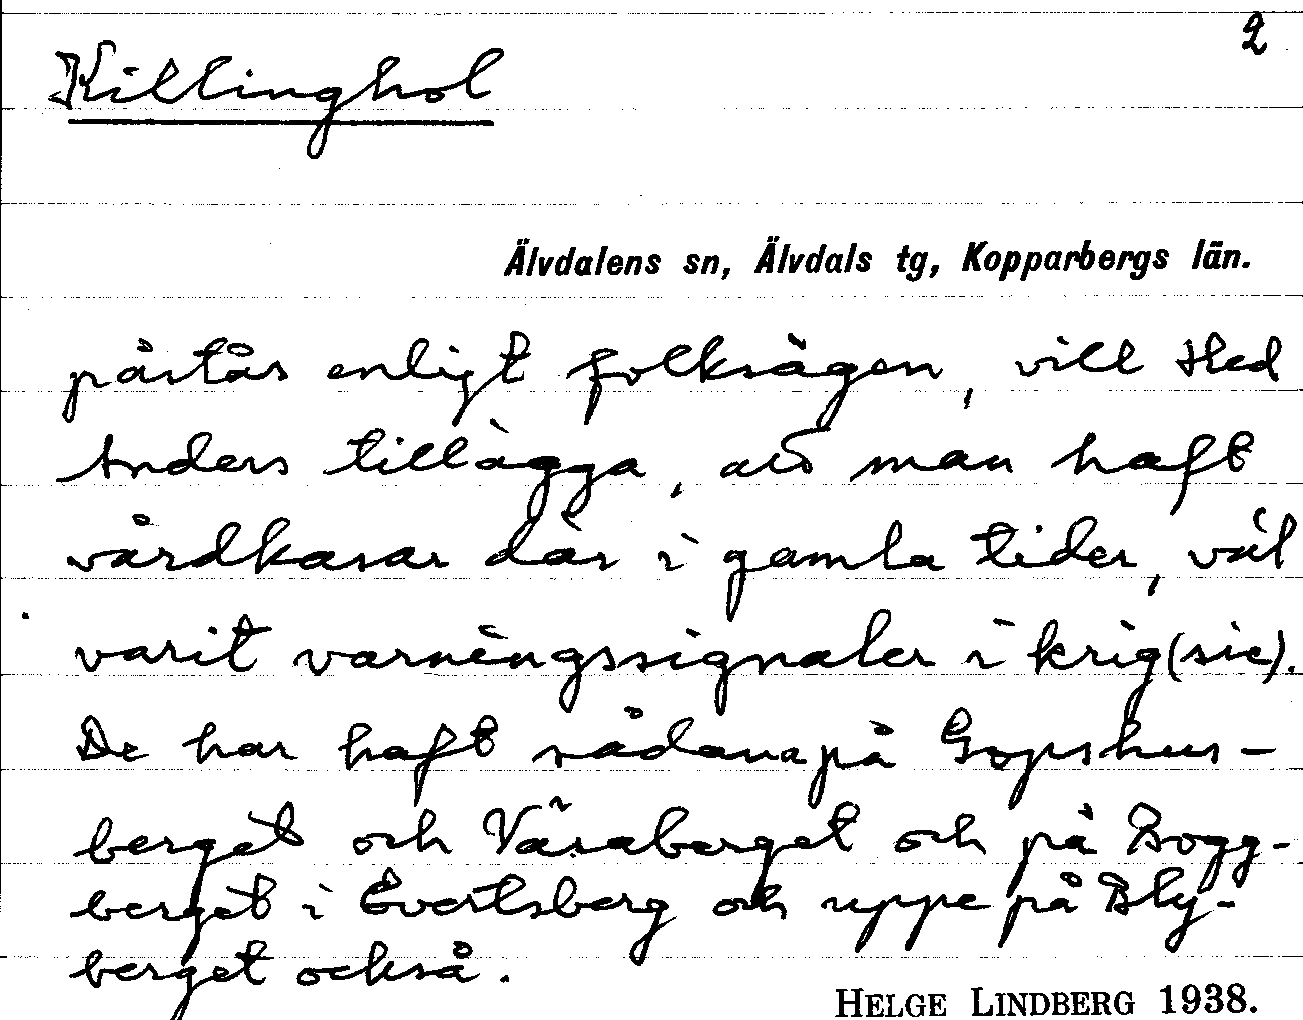 2
Killinghol
Älvdalens sn, Älvdals tg, Kopparbergs län.
påstås enligt folksägen, vill Hed
Anders tillägga, att man haft
vårdkasar där i gamla tider, väl
varit varningssignaler i krig (sic).
De har haft sådana på Gopshus-
berget och Väsaberget och på Bogg-
berget i Evertsberg och uppe på Bly-
berget också.
HELGE LINDBERG 1938.